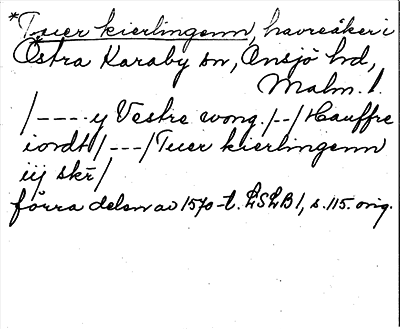 *Tuer kierlingenn, havreåker i
Östra Karaby sn, Onsjö hd,
Malm. l.
/----y Vestre vong. /--/ Hauffre
iordt /---/ Tuer kierlingenn
iij skr̄ /
förra delen av 1570-t. LSLB 1, s. 115. orig.